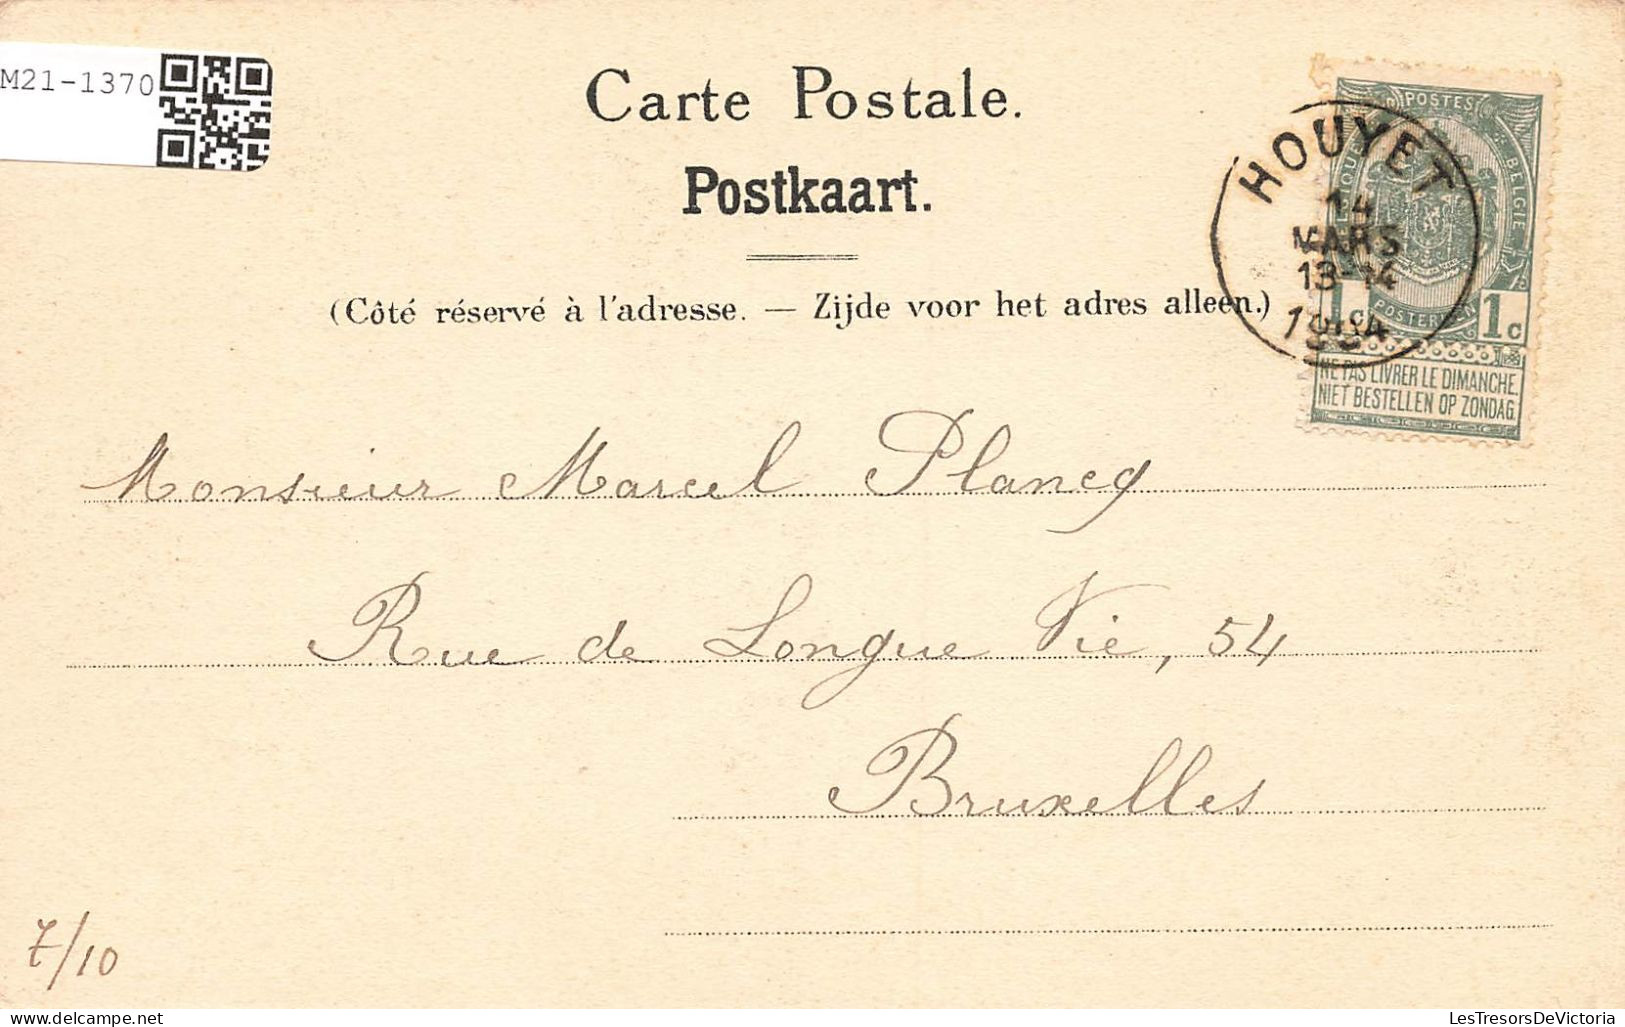 M21-1370
Carte Postale.
Postkaart.
(Côté réservé à l'adresse. — Zijde voor het adres alleen.)
POSTES
BELGIE
1c POSTERIJEN 1c
NE PAS LIVRER LE DIMANCHE.
NIET BESTELLEN OP ZONDAG.
HOUYET
14
MARS
13-14
1904
Monsieur Marcel Plancq
Rue de Longue Vie, 54
Bruxelles
7/10
delcampe.net
LesTresorsDeVictoria